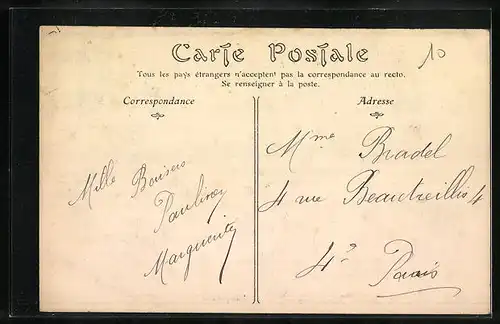 Carte Postale
10
Tous les pays étrangers n'acceptent pas la correspondance au recto.
Se renseigner à la poste.
Correspondance
Mille Baisers
Pauline
Marguerite
Adresse
Mme Bradel
4 rue Beautreillis 4
4e Paris